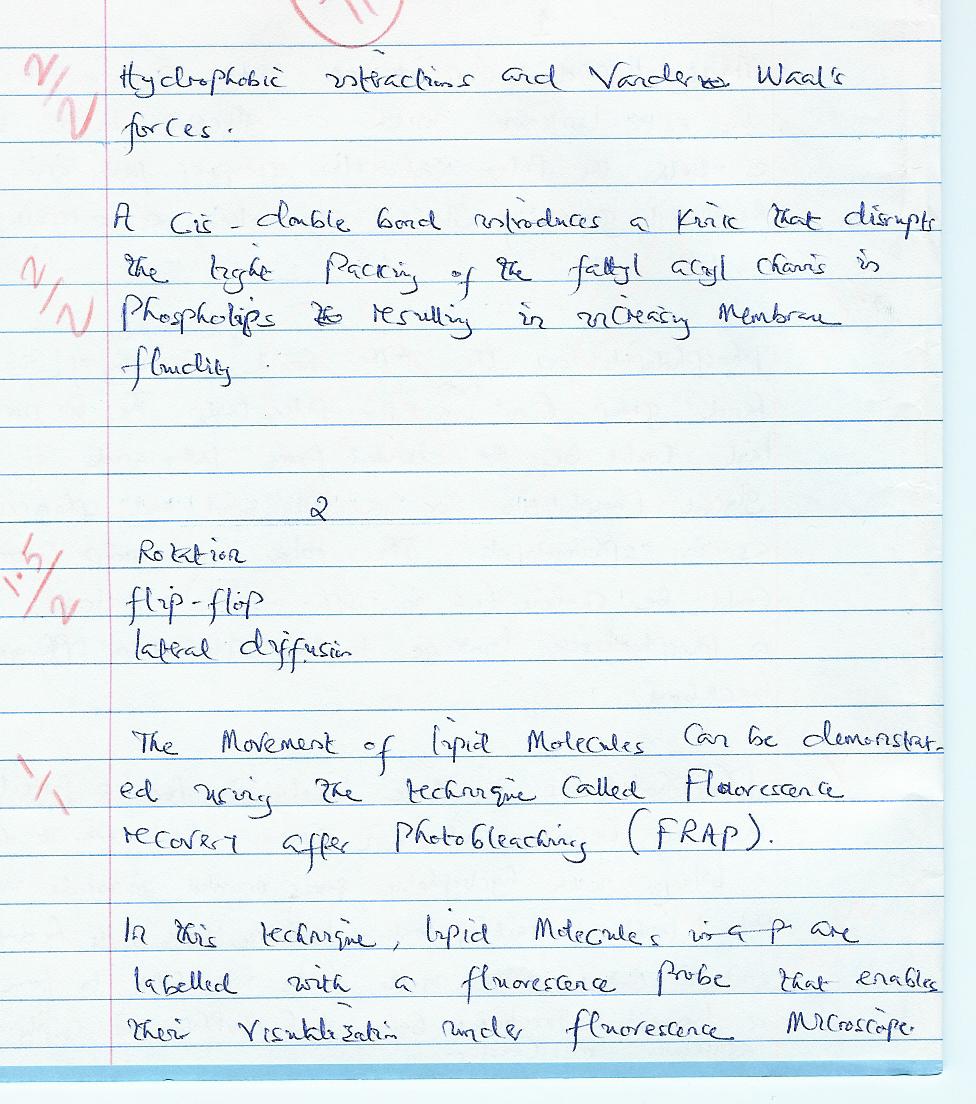 2/2
Hydrophobic interactions and Vander Waal's
forces.
A Cis-double bond introduces a kink that disrupts
2/2
the tight packing of the fattyl acyl chains in
Phospholips resulting in increasing Membrane
fluidity.
2
1.5/2
Rotation
flip-flop
lateral diffusion
The Movement of lipid Molecules Can be demonstrat-
1/1
ed using the technique Called Fluorescence
recovery after Photobleaching (FRAP).
In this technique, lipid Molecules are
labelled with a fluorescence Probe that enables
their visualization under fluorescence Microscope.